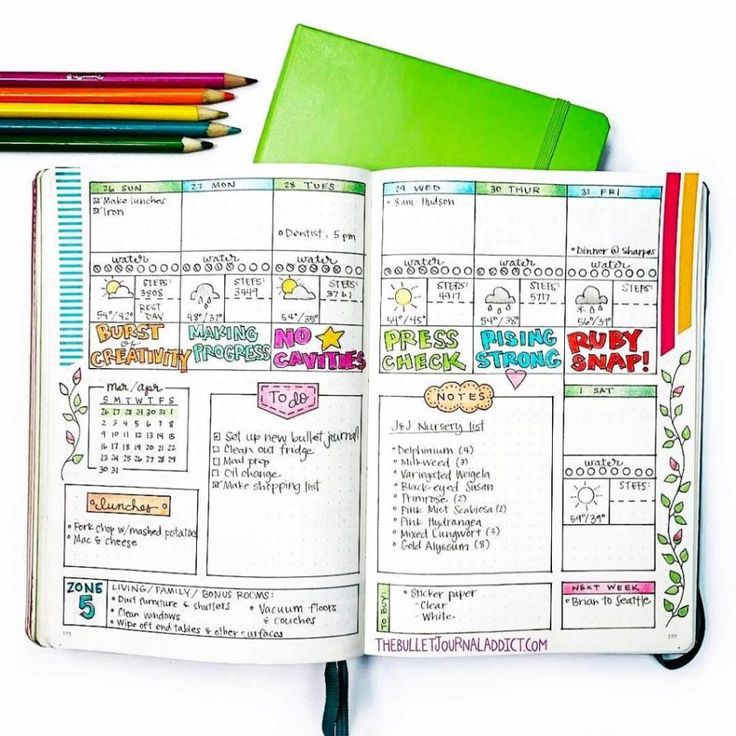 26 SUN
Make lunches
Iron
27 MON
28 TUES
Dentist, 5 pm
29 WED
8am-Hudson
30 THUR
31 FRI
Dinner @ Sharpes
water
water
water
water
water
water
STEPS:
3808
REST
DAY
54°/42°
STEPS:
3449
48°/37°
STEPS:
54°/35°
STEPS:
4917
54°/45°
STEPS:
5717
54°/38°
STEPS:
BURST
of
CREATIVITY
MAKING
PROGRESS
NO
CAVITIES
PRESS
CHECK
RISING
STRONG
RUBY
SNAP!
mar/apr
S M T W T F S
26 27 28 29 30 31 1
2 3 4 5 6 7 8
9 10 11 12 13 14 15
16 17 18 19 20 21 22
23 24 25 26 27 28 29
30 31
To do
Set up new bullet journal
Clean out fridge
Mail prep
Oil change
Make shopping list
lunches
Pork chop w/mashed potatoes
Mac & cheese
NOTES
J&J Nursery list
Delphinium (4)
Milkweed (3)
Variegated Weigela
Black-eyed Susan
Primrose (2)
Pink Mist Scabiosa (2)
Pink Hydrangea
Mixed Lungwort (3)
Gold Alyssum (8)
1 SAT
water
STEPS:
59°/39°
ZONE
5
LIVING/FAMILY/BONUS ROOMS:
Dust furniture & shutters
Clean windows
Wipe off end tables & other surfaces
Vacuum floors
& couches
TO BUY:
Sticker paper
- Clear
- White
NEXT WEEK
Brian to Seattle
THEBULLETJOURNALADDICT.COM